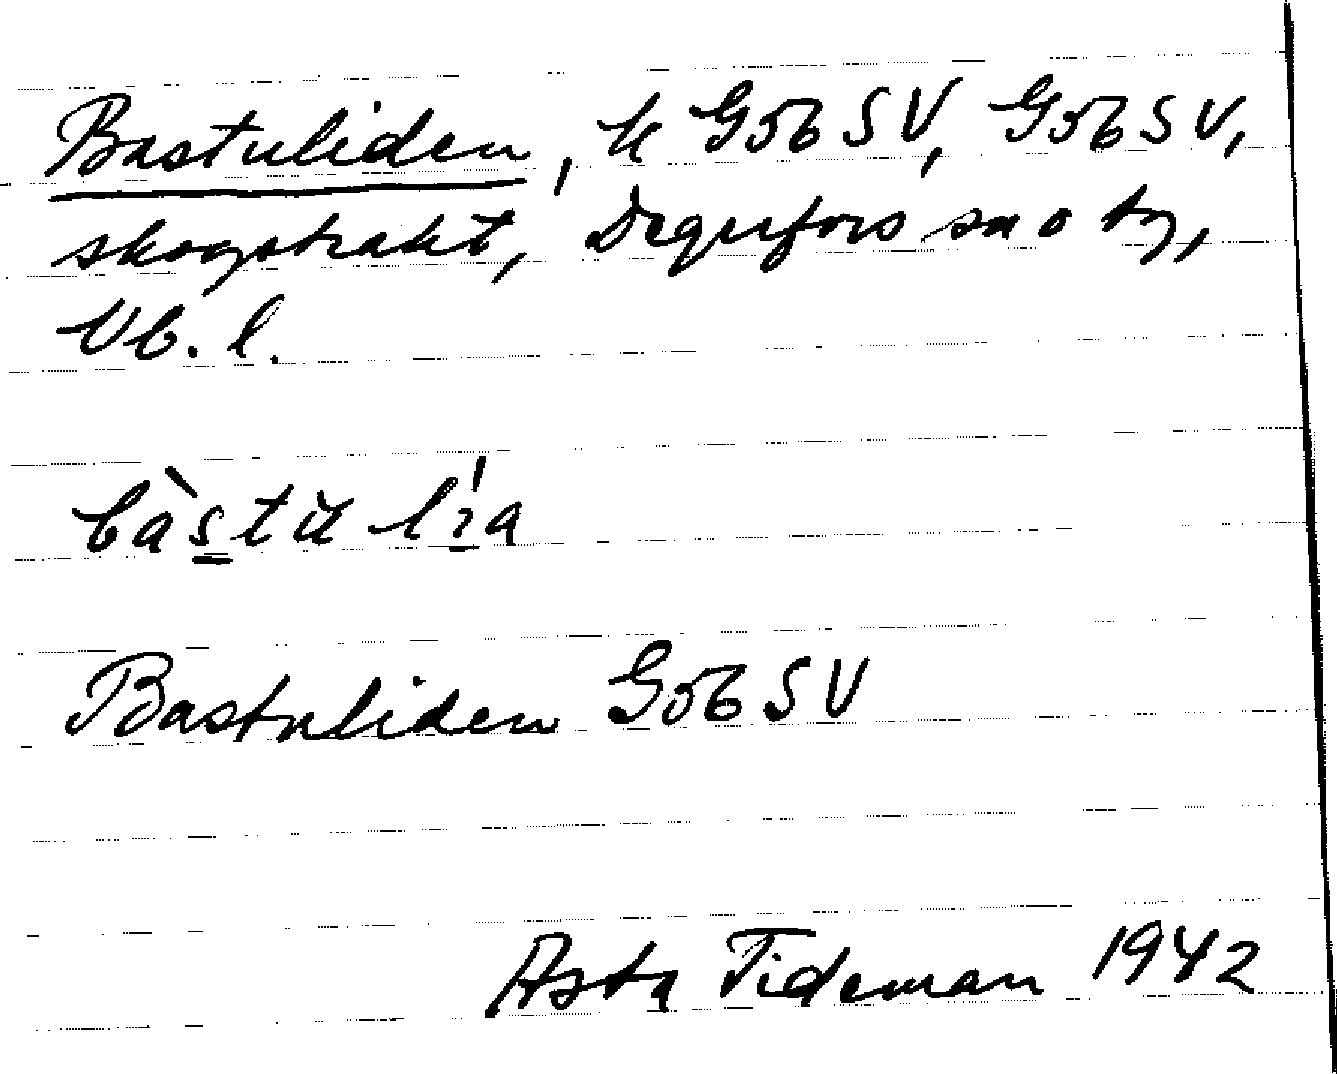 Bastuliden, k G5b SV, G5b SV,
skogstrakt, Degerfors sn o tg,
Vb. l.
bàstu lía
Bastuliden G5b SV
Asta Tideman 1942